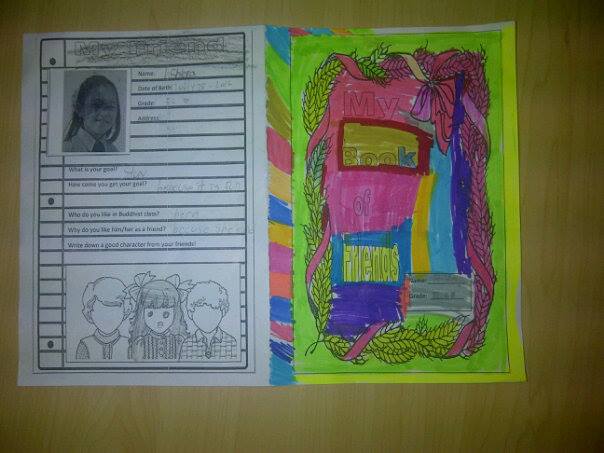 My Friend
Name:
Date of Birth:
Grade:
Address:
What is your goal? fun
How come you get your goal? because it is fun
Who do you like in Buddhist class?
Why do you like him/her as a friend? because she
Write down a good character from your friends!
My
Book
of
Friends
Name:
Grade: